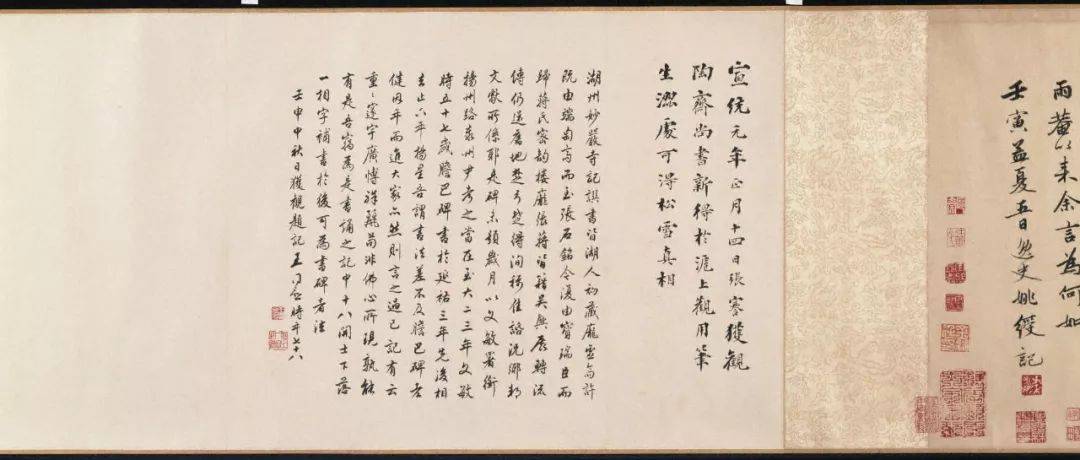 雨菴以来余言為何如
壬寅孟夏五日逸史姚綬記
宣統元年正月十四日張謇獲觀
陶齋尚書新得於滬上觀用筆
生澀處可得松雪真相
湖州妙嚴寺記譔書皆湖人初藏龐虛齋許
既由瑞匋齋而至張石銘今復由寶瑞臣而
歸蔣氏密韵樓龐張蔣皆籍吳興展轉流
傳仍還舊地楚弓楚得洵稱佳話況鄉邦
文獻所係耶是碑未題歲月以文敏署銜
揚州路泰州尹考之當在至大二三年文敏
時五十七歲膽巴碑書於延祐三年先後相
去止六年楊星吾謂書法差不及膽巴碑老
健因年而進大家亦然則言之過已記有云
重重邃宇廣博祥麗苟非佛心所現孰能
有是吾竊為是書誦之記中十八開士下落
一相字補書於後可為書碑者法
壬申中秋日獲觀題記王同愈時年七十八